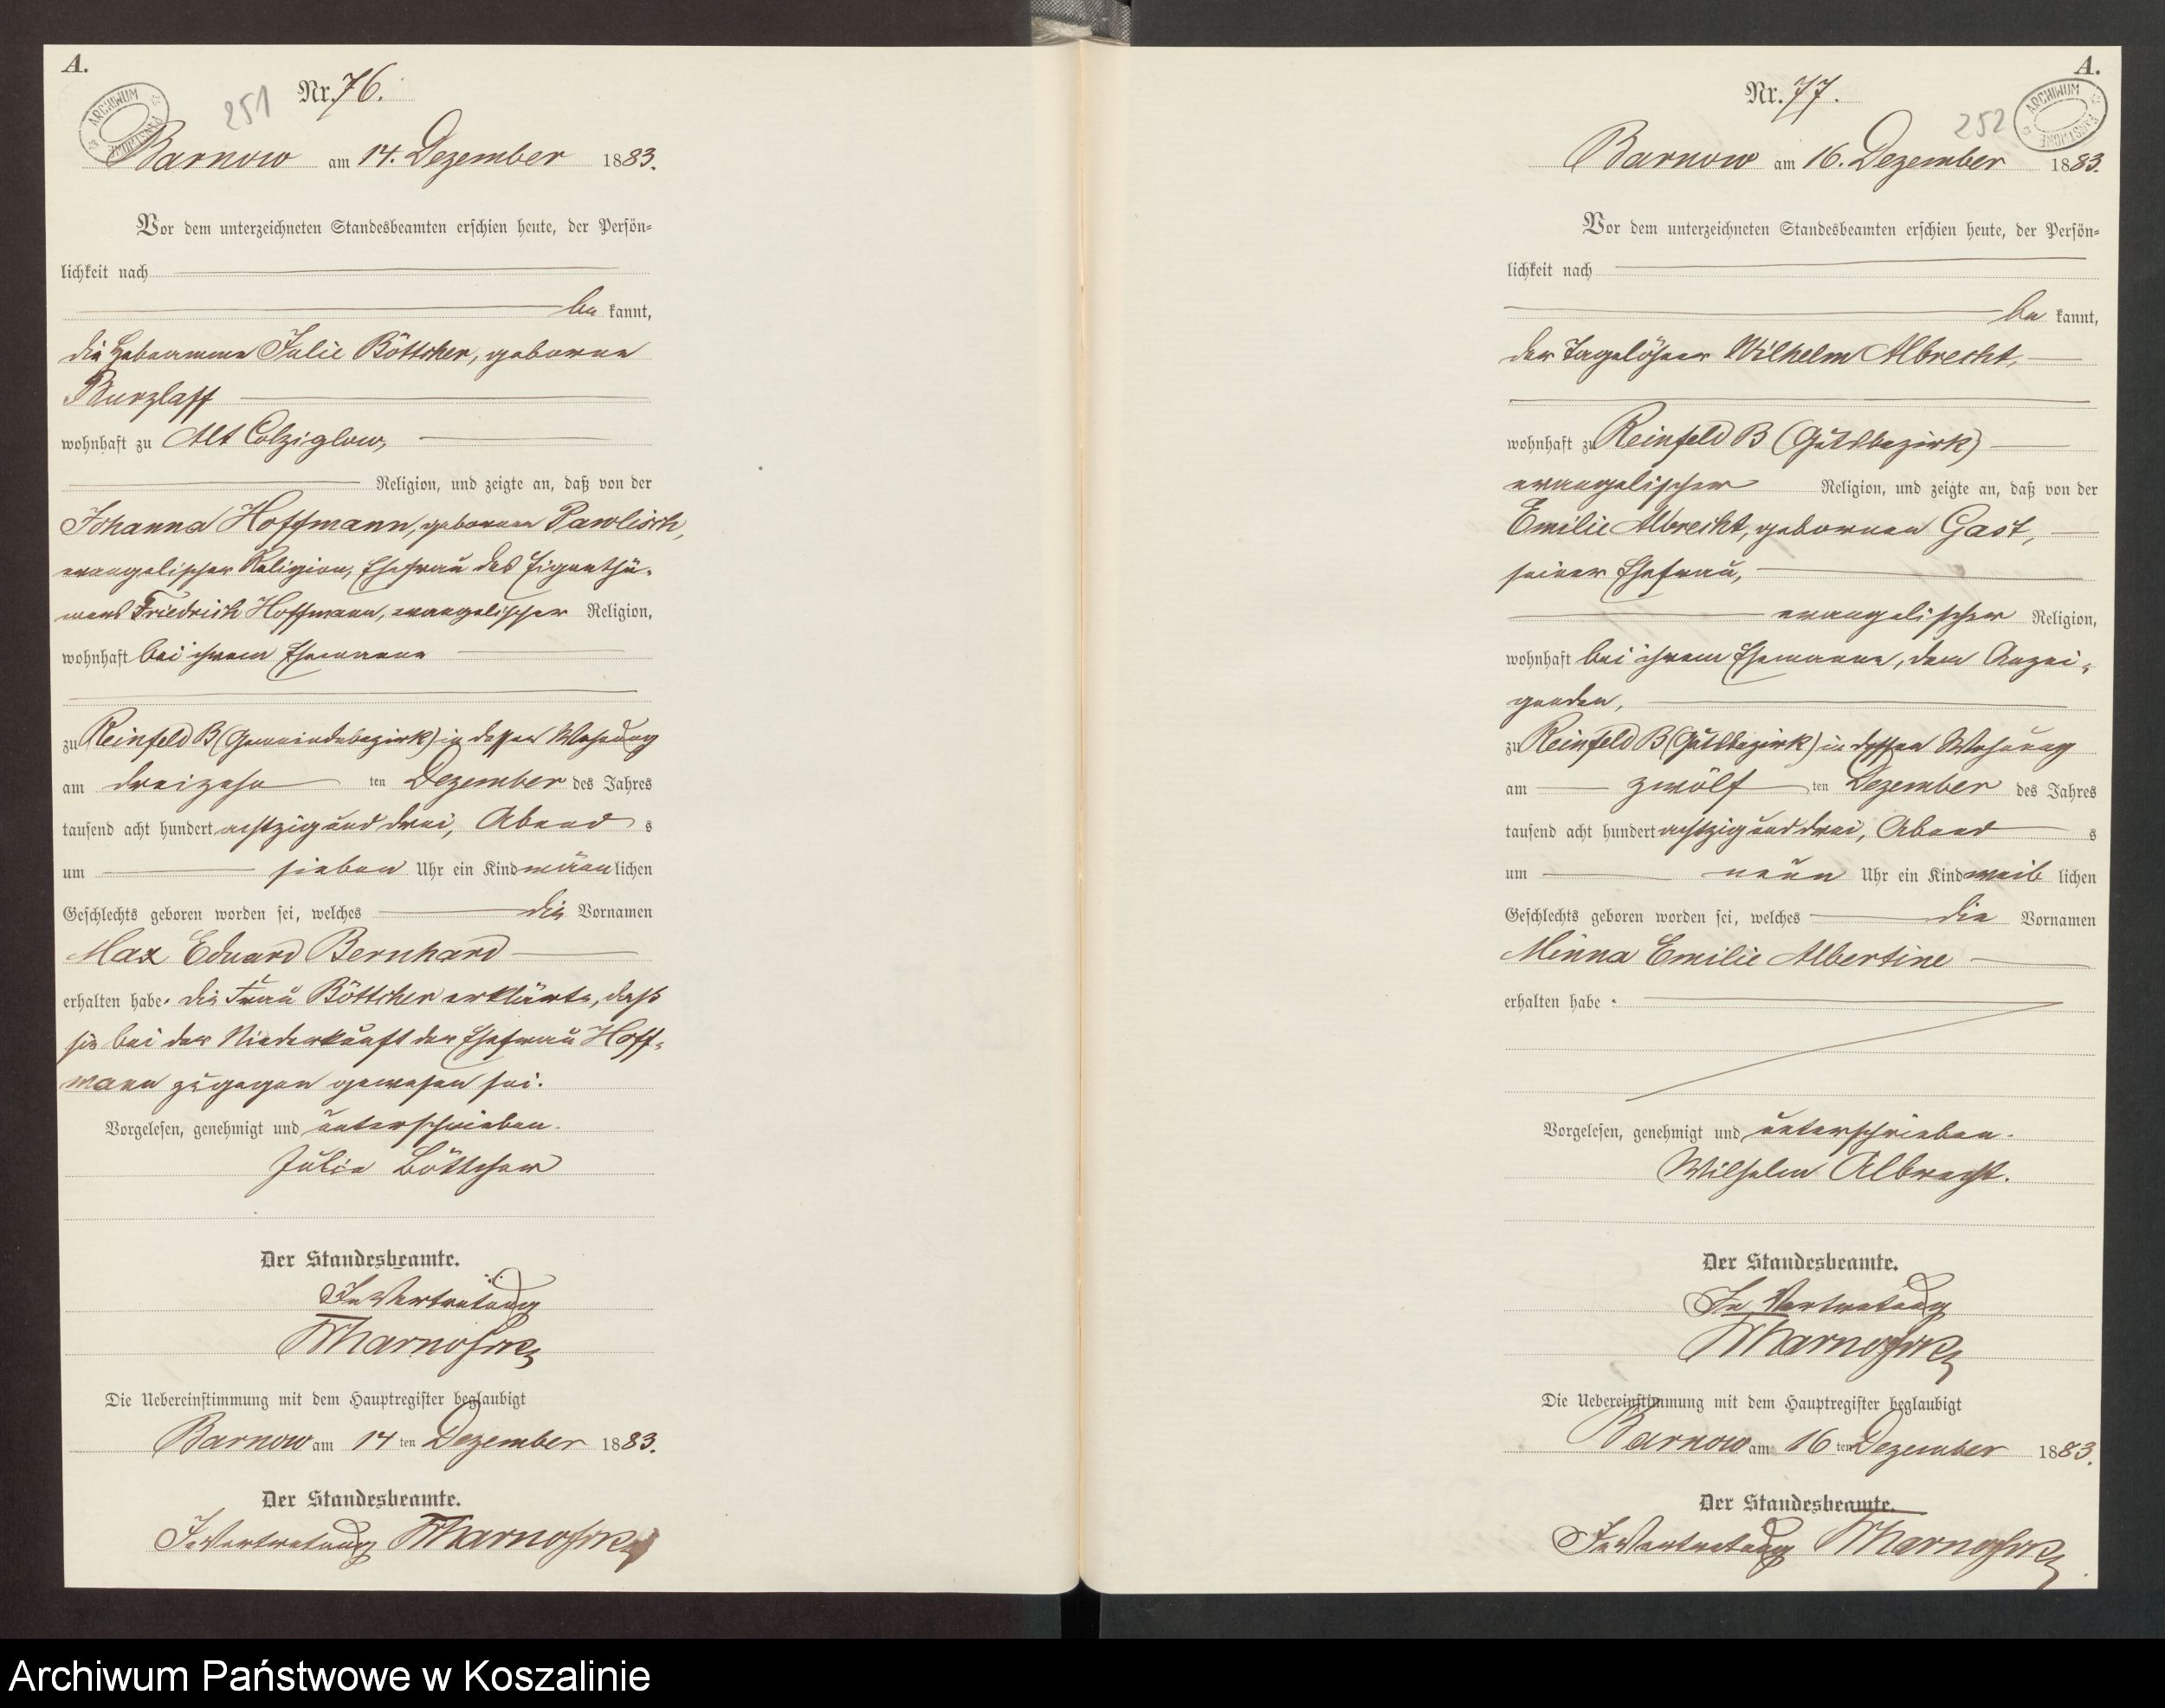 A.
ARCHIWUM PAŃSTWOWE
251
Nr. 76.
Barnow am 14. Dezember 1883.
Vor dem unterzeichneten Standesbeamten erschien heute, der Persön=
lichkeit nach
be kannt,
die Hebeamme Julie Böttcher, geborne
Kurzlaff
wohnhaft zu Alt Colziglow,
Religion, und zeigte an, daß von der
Johanna Hoffmann, gebornen Pawlisch,
evangelischer Religion, Ehefrau des Eigenthü-
mers Friedrich Hoffmann, evangelischer Religion,
wohnhaft bei ihrem Ehemanne
zu Reinfeld B (Gemeindebezirk) in dessen Wohnung
am dreizehn ten Dezember des Jahres
tausend acht hundert achtzig und drei, Abend s
um sieben Uhr ein Kind männ lichen
Geschlechts geboren worden sei, welches die Vornamen
Max Eduard Bernhard
erhalten habe. Die Frau Böttcher erklärte, daß
sie bei der Niederkunft der Ehefrau Hoff-
mann zugegen gewesen sei.
Vorgelesen, genehmigt und unterschrieben.
Julie Böttcher
Der Standesbeamte.
In Vertretung
Die Uebereinstimmung mit dem Hauptregister beglaubigt
Barnow am 14 ten Dezember 1883.
Der Standesbeamte.
In Vertretung
A.
ARCHIWUM PAŃSTWOWE
252
Nr. 77.
Barnow am 16. Dezember 1883.
Vor dem unterzeichneten Standesbeamten erschien heute, der Persön=
lichkeit nach
be kannt,
der Tagelöhner Wilhelm Albrecht,
wohnhaft zu Reinfeld B (Gutsbezirk)
evangelischer Religion, und zeigte an, daß von der
Emilie Albrecht, gebornen Gast,
seiner Ehefrau,
evangelischer Religion,
wohnhaft bei ihrem Ehemanne, dem Anzei-
genden,
zu Reinfeld B (Gutsbezirk) in dessen Wohnung
am zwölf ten Dezember des Jahres
tausend acht hundert achtzig und drei, Abend s
um neun Uhr ein Kind weib lichen
Geschlechts geboren worden sei, welches die Vornamen
Minna Emilie Albertine
erhalten habe.
Vorgelesen, genehmigt und unterschrieben.
Wilhelm Albrecht.
Der Standesbeamte.
In Vertretung
Die Uebereinstimmung mit dem Hauptregister beglaubigt
Barnow am 16 ten Dezember 1883.
Der Standesbeamte.
In Vertretung
Archiwum Państwowe w Koszalinie